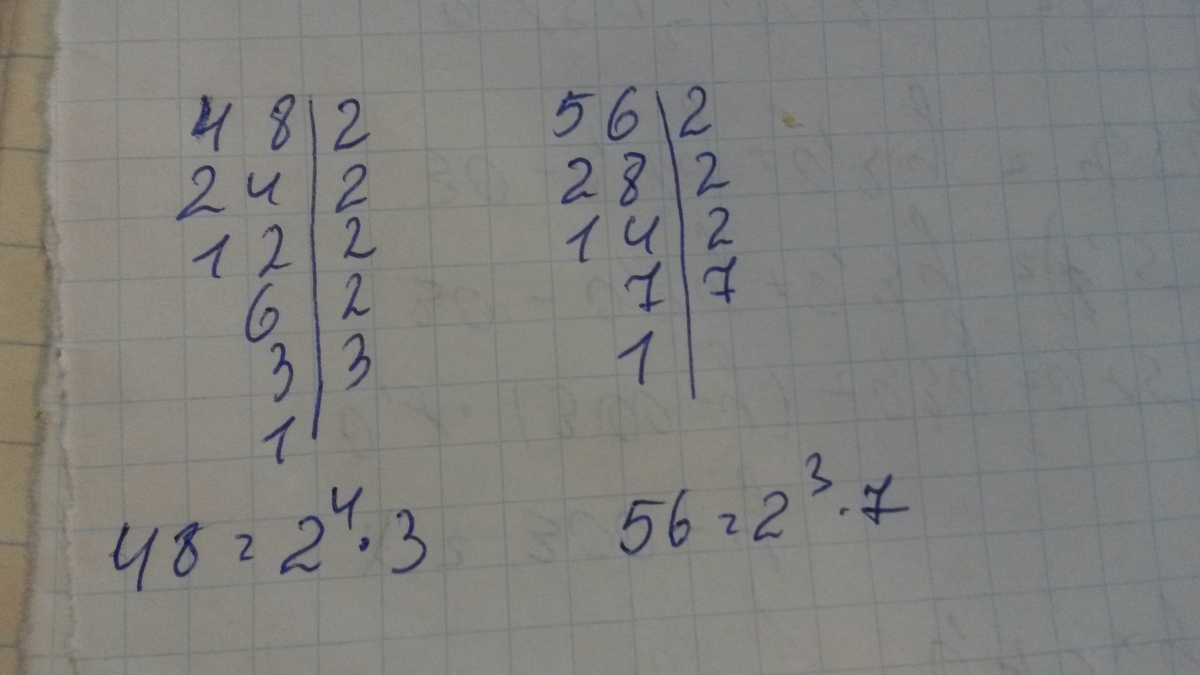 48|2 56|2
24|2 28|2
12|2 14|2
6|2 7|7
3|3 1|
1|
48 = 2⁴·3 56 = 2³·7